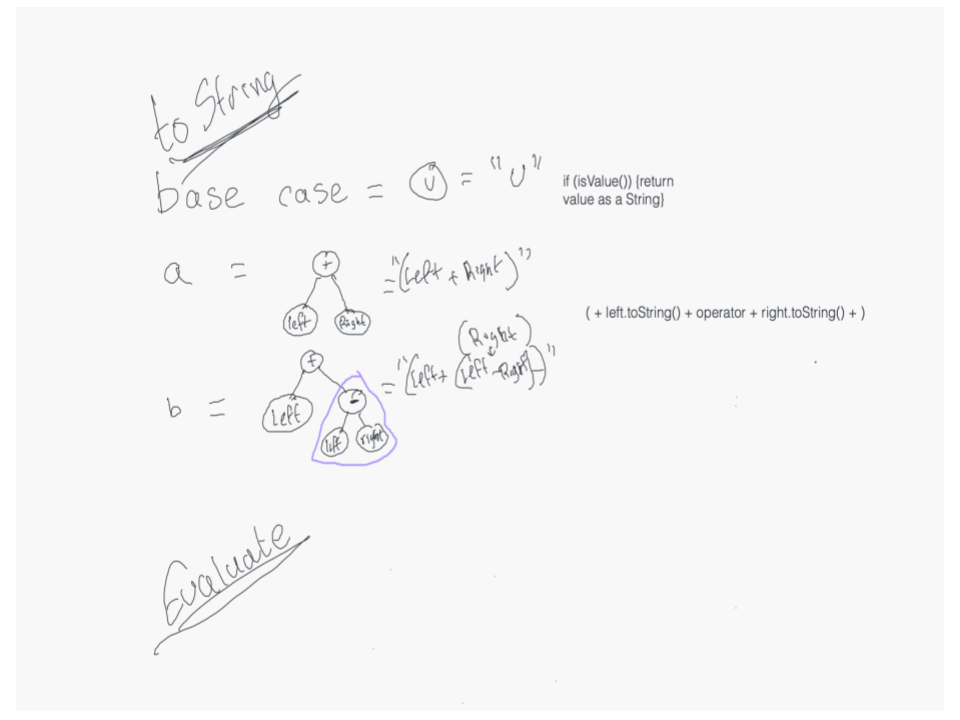 to String
base case = v = "v"
if (isValue()) {return
value as a String}
a = + left Right = "(Left + Right)"
( + left.toString() + operator + right.toString() + )
(Right)
b = + Left - left right = "(Left + (Left - Right))"
Evaluate